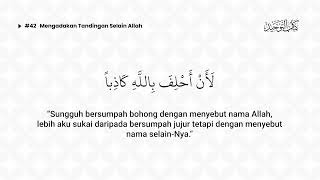 #42 Mengadakan Tandingan Selain Allah
كتاب التوحيد
لَأَنْ أَحْلِفَ بِاللَّهِ كَاذِباً
“Sungguh bersumpah bohong dengan menyebut nama Allah,
lebih aku sukai daripada bersumpah jujur tetapi dengan menyebut
nama selain-Nya.”